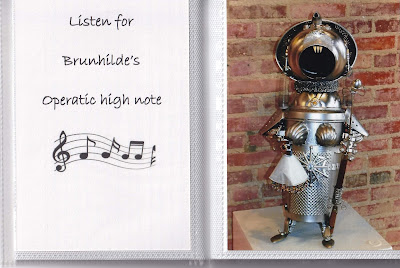 Listen for
Brunhilde's
Operatic high note